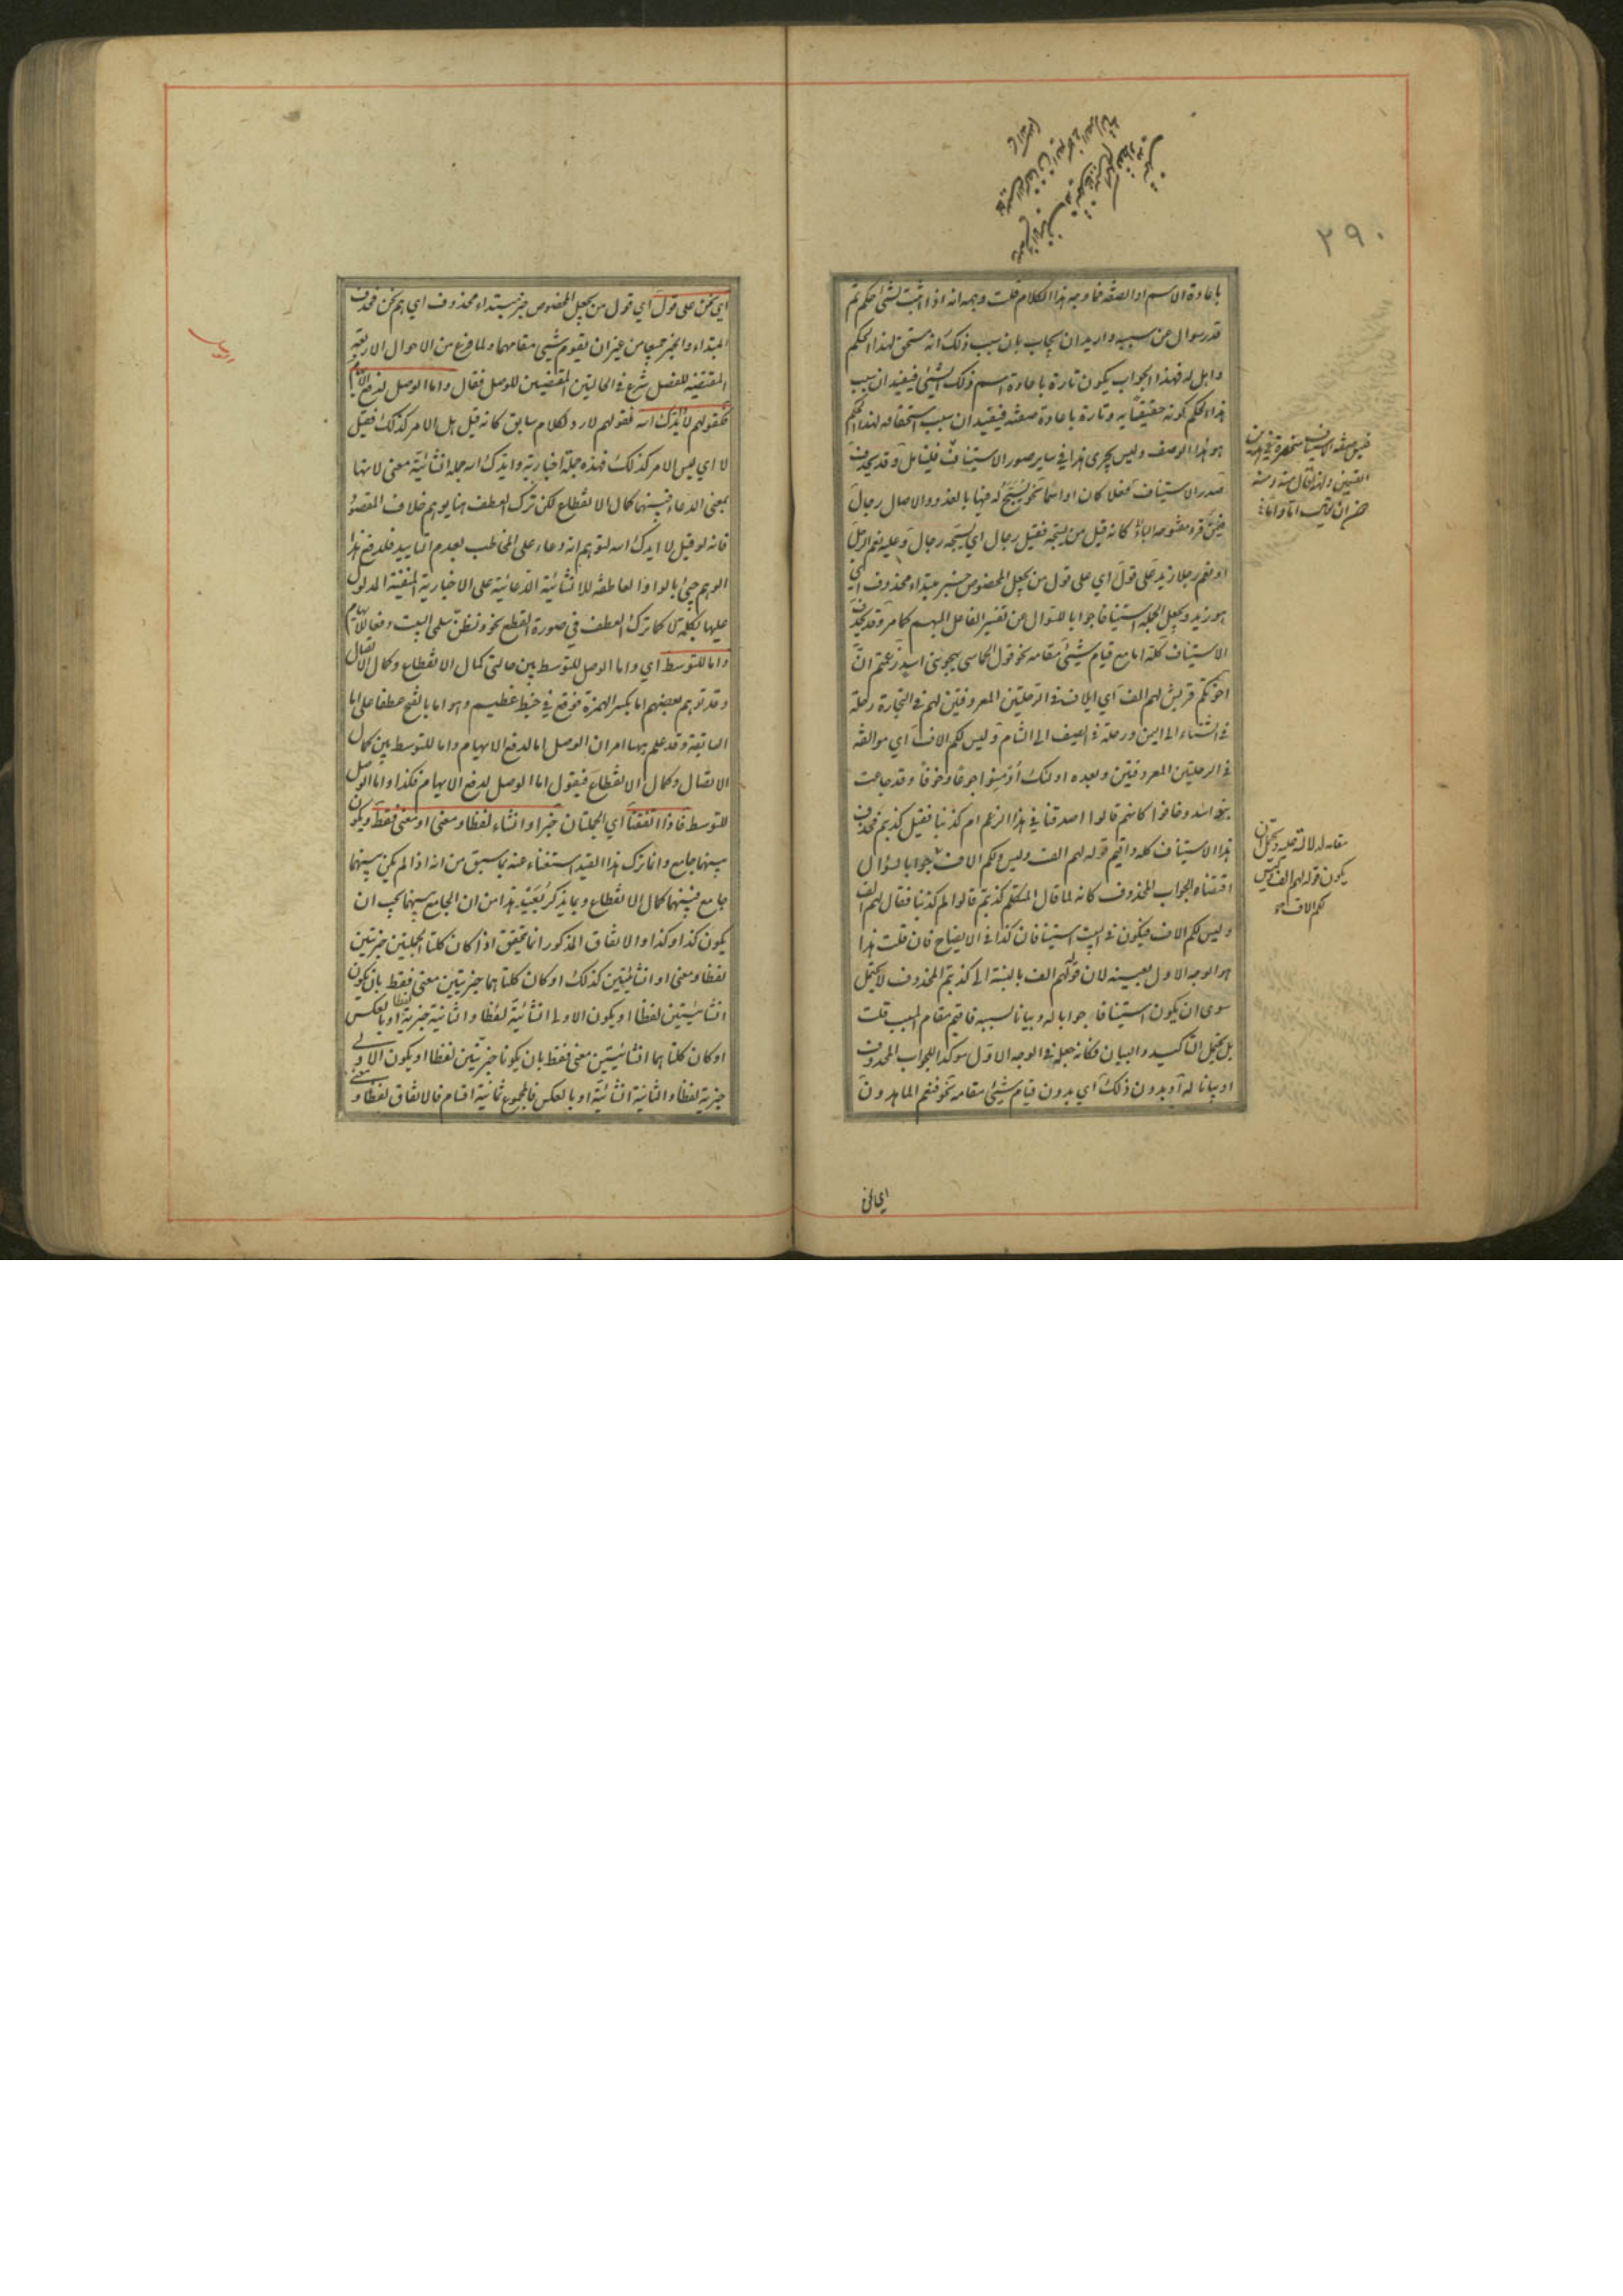 ٢٩٠
باعادة الاسم او الصفة فما وجه هذا الكلام قلت وجهه انه اذا اثبت لشئ حكم ثم
قدر سوال عن سببه واريد ان يجاب بان سبب ذلك انه مستحق لهذا الحكم
واهل له فهذا الجواب يكون تارة باعادة اسم ذلك الشئ فيفيد ان سبب
هذا الحكم كونه حقيقا به وتارة باعادة صفته فيفيد ان سبب استحقاقه لهذا الحكم
هو هذا الوصف وليس يجرى هذا في ساير صور الاستيناف فليتامل وقد يحذف
صدر الاستيناف فعلا كان او اسما نحو يسبح له فيها بالغدو والاصال رجال
فيمن قرء مفتوحة الباء كانه قيل من يسبحه فقيل رجال اي يسبحه رجال وعليه نعم الرجل
او نعم رجلا زيد على قول اي على قول من يجعل المخصوص خبر مبتداء محذوف اي
هو زيد ويجعل الجملة استينافا جوابا للسوال عن تفسير الفاعل المبهم كما مر وقد يحذف
الاستيناف كله اما مع قيام شئ مقامه نحو قول الحماسي يهجو بني اسد زعمتم ان
اخوتكم قريش لهم الف اي ايلاف في الرحلتين المعروفتين لهم في التجارة رحلة
في الشتاء الى اليمن ورحلة في الصيف الى الشام وليس لكم الاف اي موالفة
في الرحلتين المعروفتين وبعده اولئك اومنوا جوعا وخوفا وقد جاعت
بنو اسد وخافوا كانهم قالوا اصدقنا في هذا الزعم ام كذبنا فقيل كذبتم فحذف
هذا الاستيناف كله واقيم قوله لهم الف وليس لكم الاف جوابا لسؤال
اقتضاه الجواب المحذوف كانه لما قال المتكلم كذبتم قالوا لم كذبنا فقال لهم الف
وليس لكم الاف فيكون في البيت استينافان كذا في الايضاح فان قلت هذا
هو الوجه الاول بعينه لان قوله لهم الف بالنسبة الى كذبتم المحذوف لا يحتمل
سوى ان يكون استينافا جوابا له وبيانا لسببه فاقيم مقام المسبب قلت
بل يحتمل التاكيد والبيان فكانه جعله في الوجه الاول موكدا للجواب المحذوف
او بيانا له او بدون ذلك اي بدون قيام شئ مقامه نحو فنعم الماهدون
مقامه لدلالته عليه ويحتمل ان
يكون قوله لهم الف وليس
لكم الاف
اي نحن
اي نحن على قول اي قول من يجعل المخصوص خبر مبتداء محذوف اي هم نحن فحذف
المبتداء والخبر جميعا من غير ان يقوم شئ مقامهما ولما فرغ من الاحوال الاربعة
المقتضية للفصل شرع في الحالتين المقتضيتين للوصل فقال واما الوصل لدفع الايهام
فكقولهم لا وايدك الله فقولهم لا رد لكلام سابق كانه قيل هل الامر كذلك فقيل
لا اي ليس الامر كذلك فهذه جملة اخبارية وايدك الله جملة انشائية معنى لانها
بمعنى الدعاء فبينهما كمال الانقطاع لكن ترك العطف هنا يوهم خلاف المقصود
فانه لو قيل لا ايدك الله لتوهم انه دعاء على المخاطب بعدم التاييد فلدفع هذا
الوهم جئ بالواو العاطفة للانشائية الدعائية على الاخبارية المنفية المدلول
عليها بكلمة لا كما ترك العطف في صورة القطع نحو وتظن سلمى البيت دفعا للايهام
واما للتوسط اي واما الوصل للتوسط بين حالتي كمال الانقطاع وكمال الاتصال
وقد توهم بعضهم اما بكسر الهمزة فوقع في خبط عظيم وهو اما بالفتح عطفا على اما
السابقة وقد علم بهما امر ان الوصل اما لدفع الايهام واما للتوسط بين كمال
الاتصال وكمال الانقطاع فيقول اما الوصل لدفع الايهام فكذا واما الوصل
للتوسط فاذا اتفقتا اي الجملتان خبرا او انشاء لفظا ومعنى او معنى فقط ويكون
بينهما جامع وانما ترك هذا القيد استغناء عنه بما سبق من انه اذا لم يكن بينهما
جامع فبينهما كمال الانقطاع وبما يذكر بعيد هذا من ان الجامع بينهما يجب ان
يكون كذا وكذا والاتفاق المذكور انما يتحقق اذا كان كلتا الجملتين خبريتين
لفظا ومعنى او انشائيتين كذلك او كان كلتاهما خبريتين معنى فقط بان يكون
انشائيتين لفظا او يكون الاولى انشائية لفظا والثانية خبرية لفظا او بالعكس
او كان كلتاهما انشائيتين معنى فقط بان يكونا خبريتين لفظا او يكون الاولى
خبرية لفظا والثانية انشائية او بالعكس فالمجموع ثمانية اقسام فالاتفاق لفظا ومعنى